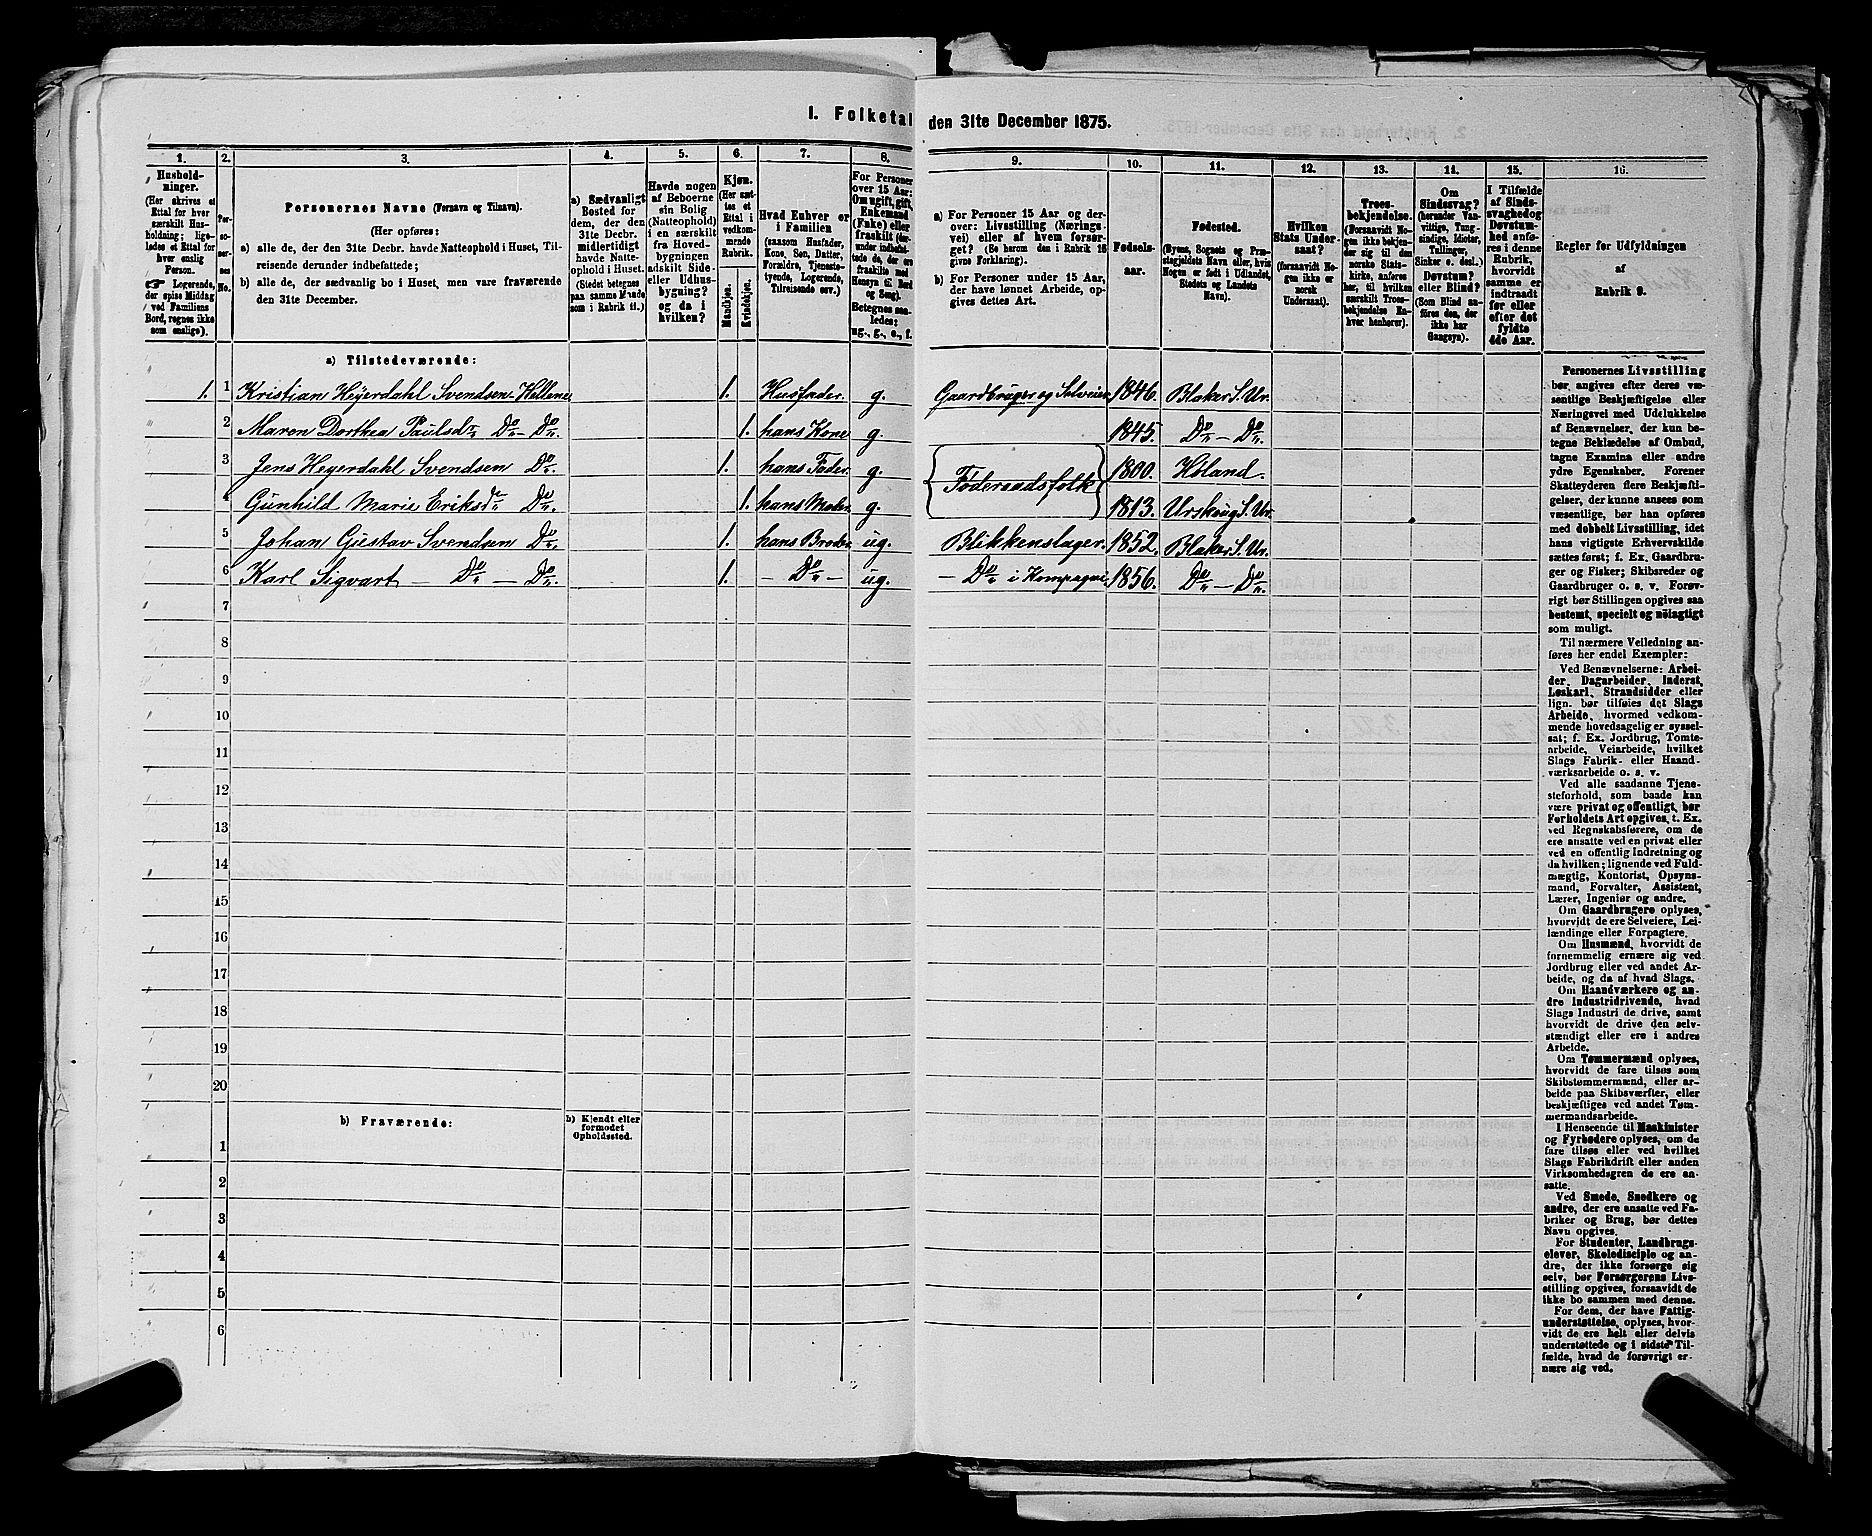 I. Folketal den 31te December 1875.
1. 2. 3. 4. 5. 6. 7. 8. 9. 10. 11. 12. 13. 14. 15. 16.
Husholdninger.
(Her skrives et Ettal for hver særskilt Husholdning; ligeledes et Ettal for hver enslig Person.
☞ Logerende, der spise Middag ved Familiens Bord, regnes ikke som enslige).
Personernes No.
Personernes Navne (Fornavn og Tilnavn).
(Her opføres:
a) alle de, der den 31te Decbr. havde Natteophold i Huset, Tilreisende derunder indbefattede;
b) alle de, der sædvanlig bo i Huset, men vare fraværende den 31te December.
a) Sædvanligt Bosted for dem, der den 31te Decbr. midlertidigt havde Natteophold i Huset.
(Stedet betegnes paa samme Maade som i Rubrik 11.)
Havde nogen af Beboerne sin Bolig (Natteophold) i en særskilt fra Hovedbygningen adskilt Side- eller Udhusbygning? og da i hvilken?
Kjøn.
(Her sættes et Ettal i vedkommende Rubrik.
Mandkjøn.
Kvindekjøn.
Hvad Enhver er i Familien
(saasom Husfader, Kone, Søn, Datter, Forældre, Tjenestetyende, Logerende, Tilreisende osv.)
For Personer over 15 Aar: Om ugift, gift, Enkemand (Enke) eller fraskilt (derunder indbefattede de, der ere fraskilte med Hensyn til Bord og Seng).
Betegnes saaledes: ug., g., e., f.
a) For Personer 15 Aar og derover: Livsstilling (Næringsvei) eller af hvem forsørget? (Se herom den i Rubrik 16 givne Forklaring).
b) For Personer under 15 Aar, der have lønnet Arbeide, opgives dettes Art.
Fødselsaar.
Fødested.
(Byens, Sognets og Præstegjeldets Navn eller, hvis Nogen er født i Udlandet, Stedets og Landets Navn).
Hvilken Stats Undersaat?
(forsaavidt Nogen ikke er norsk Undersaat).
Troesbekjendelse.
(Forsaavidt Nogen ikke bekjender sig til den norske Statskirke, anføres her, til hvilken særskilt Troesbekjendelse Enhver henhører).
Om Sindssvag?
(herunder Vanvittige, Tungsindige, Idioter, Tullinger, Sinker o. desl.)
Døvstum?
eller Blind?
(Som Blind anføres den, der ikke har Gangsyn).
I Tilfælde af Sindssvaghed og Døvstumhed anføres i denne Rubrik, hvorvidt samme er indtraadt før eller efter det fyldte 4de Aar.
Regler for Udfyldningen af Rubrik 9.
a) Tilstedeværende:
1. 1 Kristian Heyerdahl Svendsen Hellene 1. Husfader. g. Gaardbruger og Selveier 1846. Blaker S. Ur.
2 Maren Dorthea Paulsdtr Do Do. 1. hans Kone g. 1845. Do – Do.
3 Jens Heyerdahl Svendsen Do. 1. hans Fader. g. Føderaadsfolk 1800. Høland.
4 Gunhild Marie Eriksdtr Do. 1. hans Moder. g. 1813. Urskoug S. Ur.
5 Johan Gustav Svendsen Do. 1. hans Broder. ug. Blikkenslager. 1852. Blaker S. Ur.
6 Karl Sigvart – Do – Do. 1. – Do – ug. – Do i Kompagni. 1856. Do – Do.
7
8
9
10
11
12
13
14
15
16
17
18
19
20
b) Fraværende:
b) Kjendt eller formodet Opholdssted.
1
2
3
4
5
6
Personernes Livsstilling
bør angives efter deres væ-
sentlige Beskjæftigelse eller
Næringsvei med Udelukkelse
af Benævnelser, der kun be-
tegne Beklædelse af Ombud,
tagne Examina eller andre
ydre Egenskaber. Forener
Skatteyderen flere Beskjæfti-
gelser, der kunne ansees som
væsentlige, bør han opføres
med dobbelt Livsstilling, idet
hans vigtigste Erhvervskilde
sættes først; f. Ex. Gaardbru-
ger og Fisker; Skibsreder og
Gaardbruger o. s. v. Forøv-
rigt bør Stillingen opgives saa
bestemt, specielt og nøiagtigt
som muligt.
Til nærmere Veiledning an-
føres her endel Exempler:
Ved Benævnelserne: Arbei-
der, Dagarbeider, Inderst,
Løskarl, Strandsidder eller
lign. bør tilføies det Slags
Arbeide, hvormed vedkom-
mende hovedsagelig er syssel-
sat; f. Ex. Jordbrug, Tomte-
arbeide, Veiarbeide, hvilket
Slags Fabrik- eller Haand-
værksarbeide o. s. v.
Ved alle saadanne Tjene-
steforhold, som baade kan
være privat og offentligt, bør
Forholdets Art opgives, t. Ex.
ved Regnskabsførere, om de
ere ansatte ved en privat eller
ved en offentlig Indretning og
da hvilken; lignende ved Fuld-
mægtig, Kontorist, Opsyns-
mand, Forvalter, Assistent,
Lærer, Ingeniør og andre.
Om Gaardbrugere oplyses,
hvorvidt de ere Selveiere, Lei-
lændinge eller Forpagtere.
Om Husmænd, hvorvidt de
fornemmelig ernære sig ved
Jordbrug eller ved andet Ar-
beide, og da af hvad Slags.
Om Haandværkere og an-
dre Industridrivende, hvad
Slags Industri de drive, samt
hvorvidt de drive den selv-
stændigt eller ere i andres
Arbeide.
Om Tømmermænd oplyses,
hvorvidt de fare tilsøs som
Skibstømmermænd, eller ar-
beide paa Skibsværfter, eller
beskjæftiges ved andet Tøm-
mermandsarbeide.
I Henseende til Maskinister
og Fyrbødere oplyses, om de
fare tilsøs eller ved hvilket
Slags Fabrikdrift eller anden
Virksomhedsgren de ere an-
satte.
Ved Smede, Snedkere og
andre, der ere ansatte ved Fa-
briker og Brug, bør dettes
Navn opgives.
For Studenter, Landbrugs-
elever, Skoledisciple og an-
dre, der ikke forsørge sig
selv, bør Forsørgerens Livs-
stilling opgives, forsaavidt de
ikke bo sammen med denne.
For dem, der have Fattig-
understøttelse, oplyses, hvor-
vidt de ere helt eller delvis
understøttede og i sidste Til-
fælde, hvad de forøvrigt er-
nære sig ved.